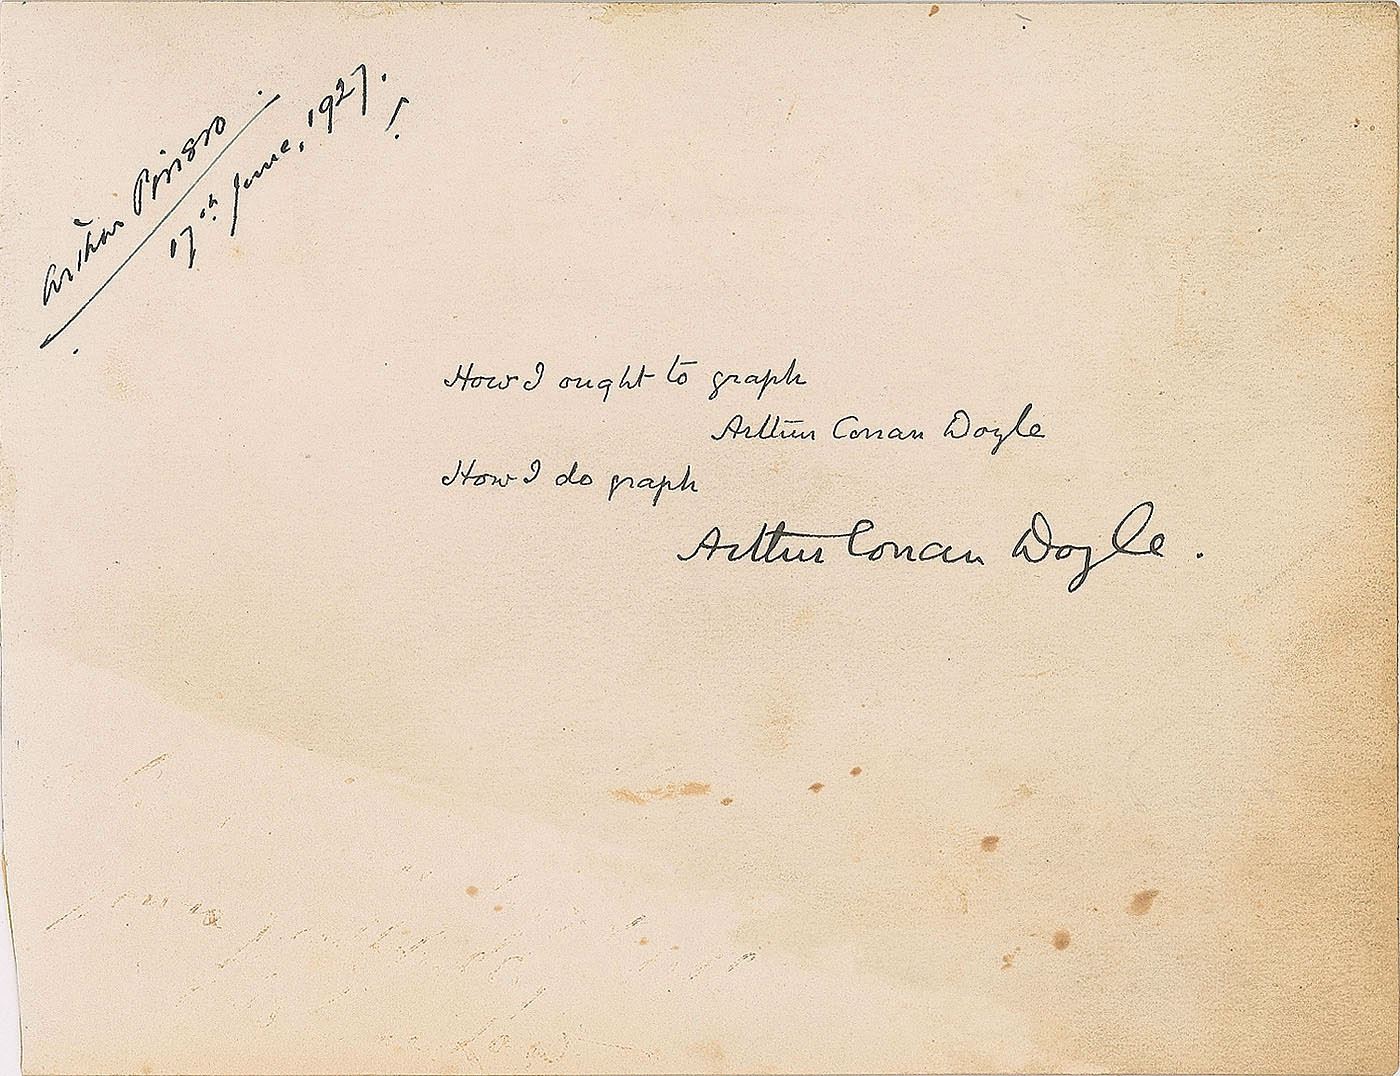 Arthur Pinero.
17th June, 1927.
!
How I ought to graph
Arthur Conan Doyle
How I do graph
Arthur Conan Doyle.